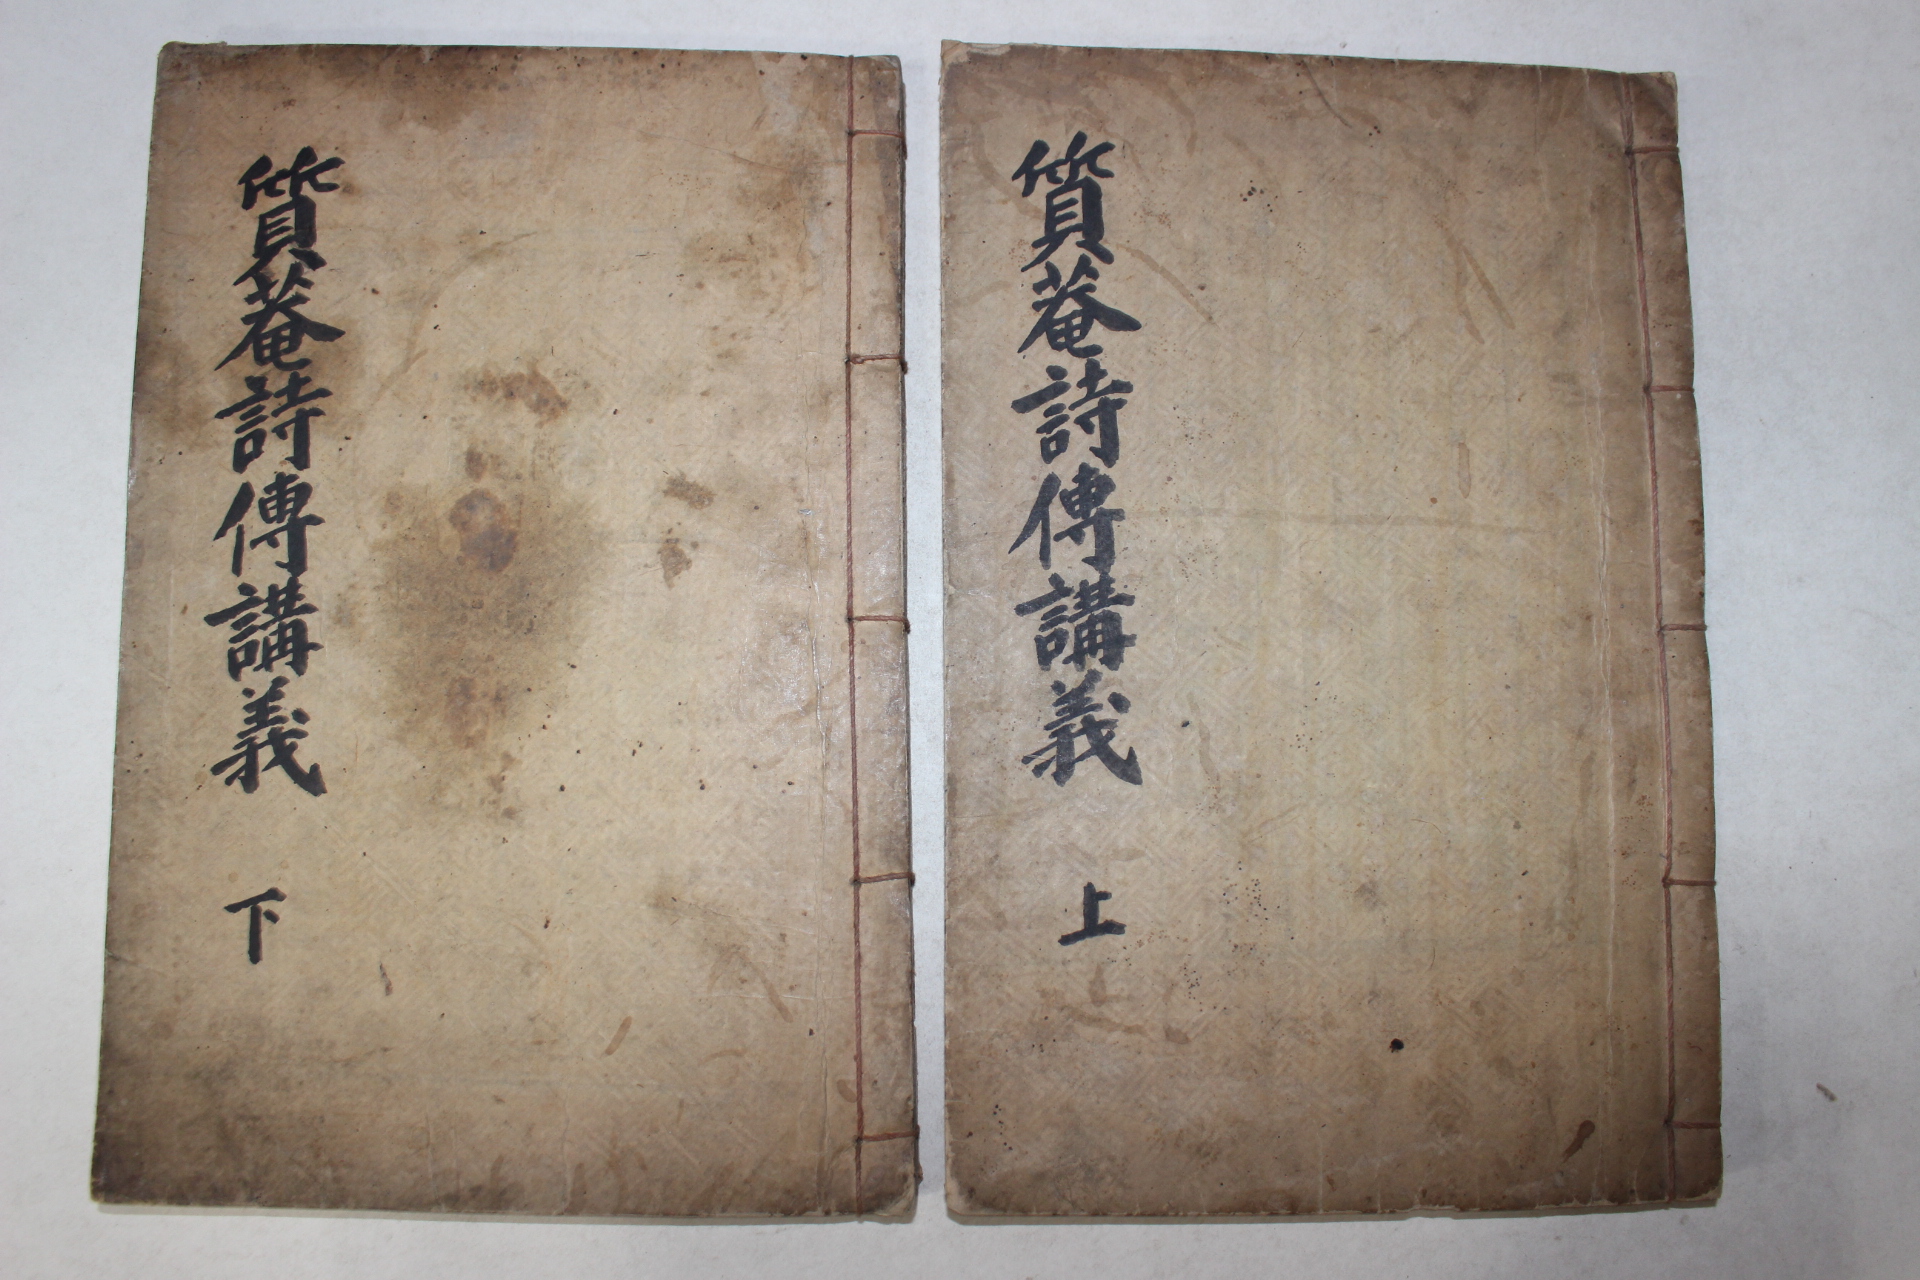 質菴詩傳講義 上
質菴詩傳講義 下